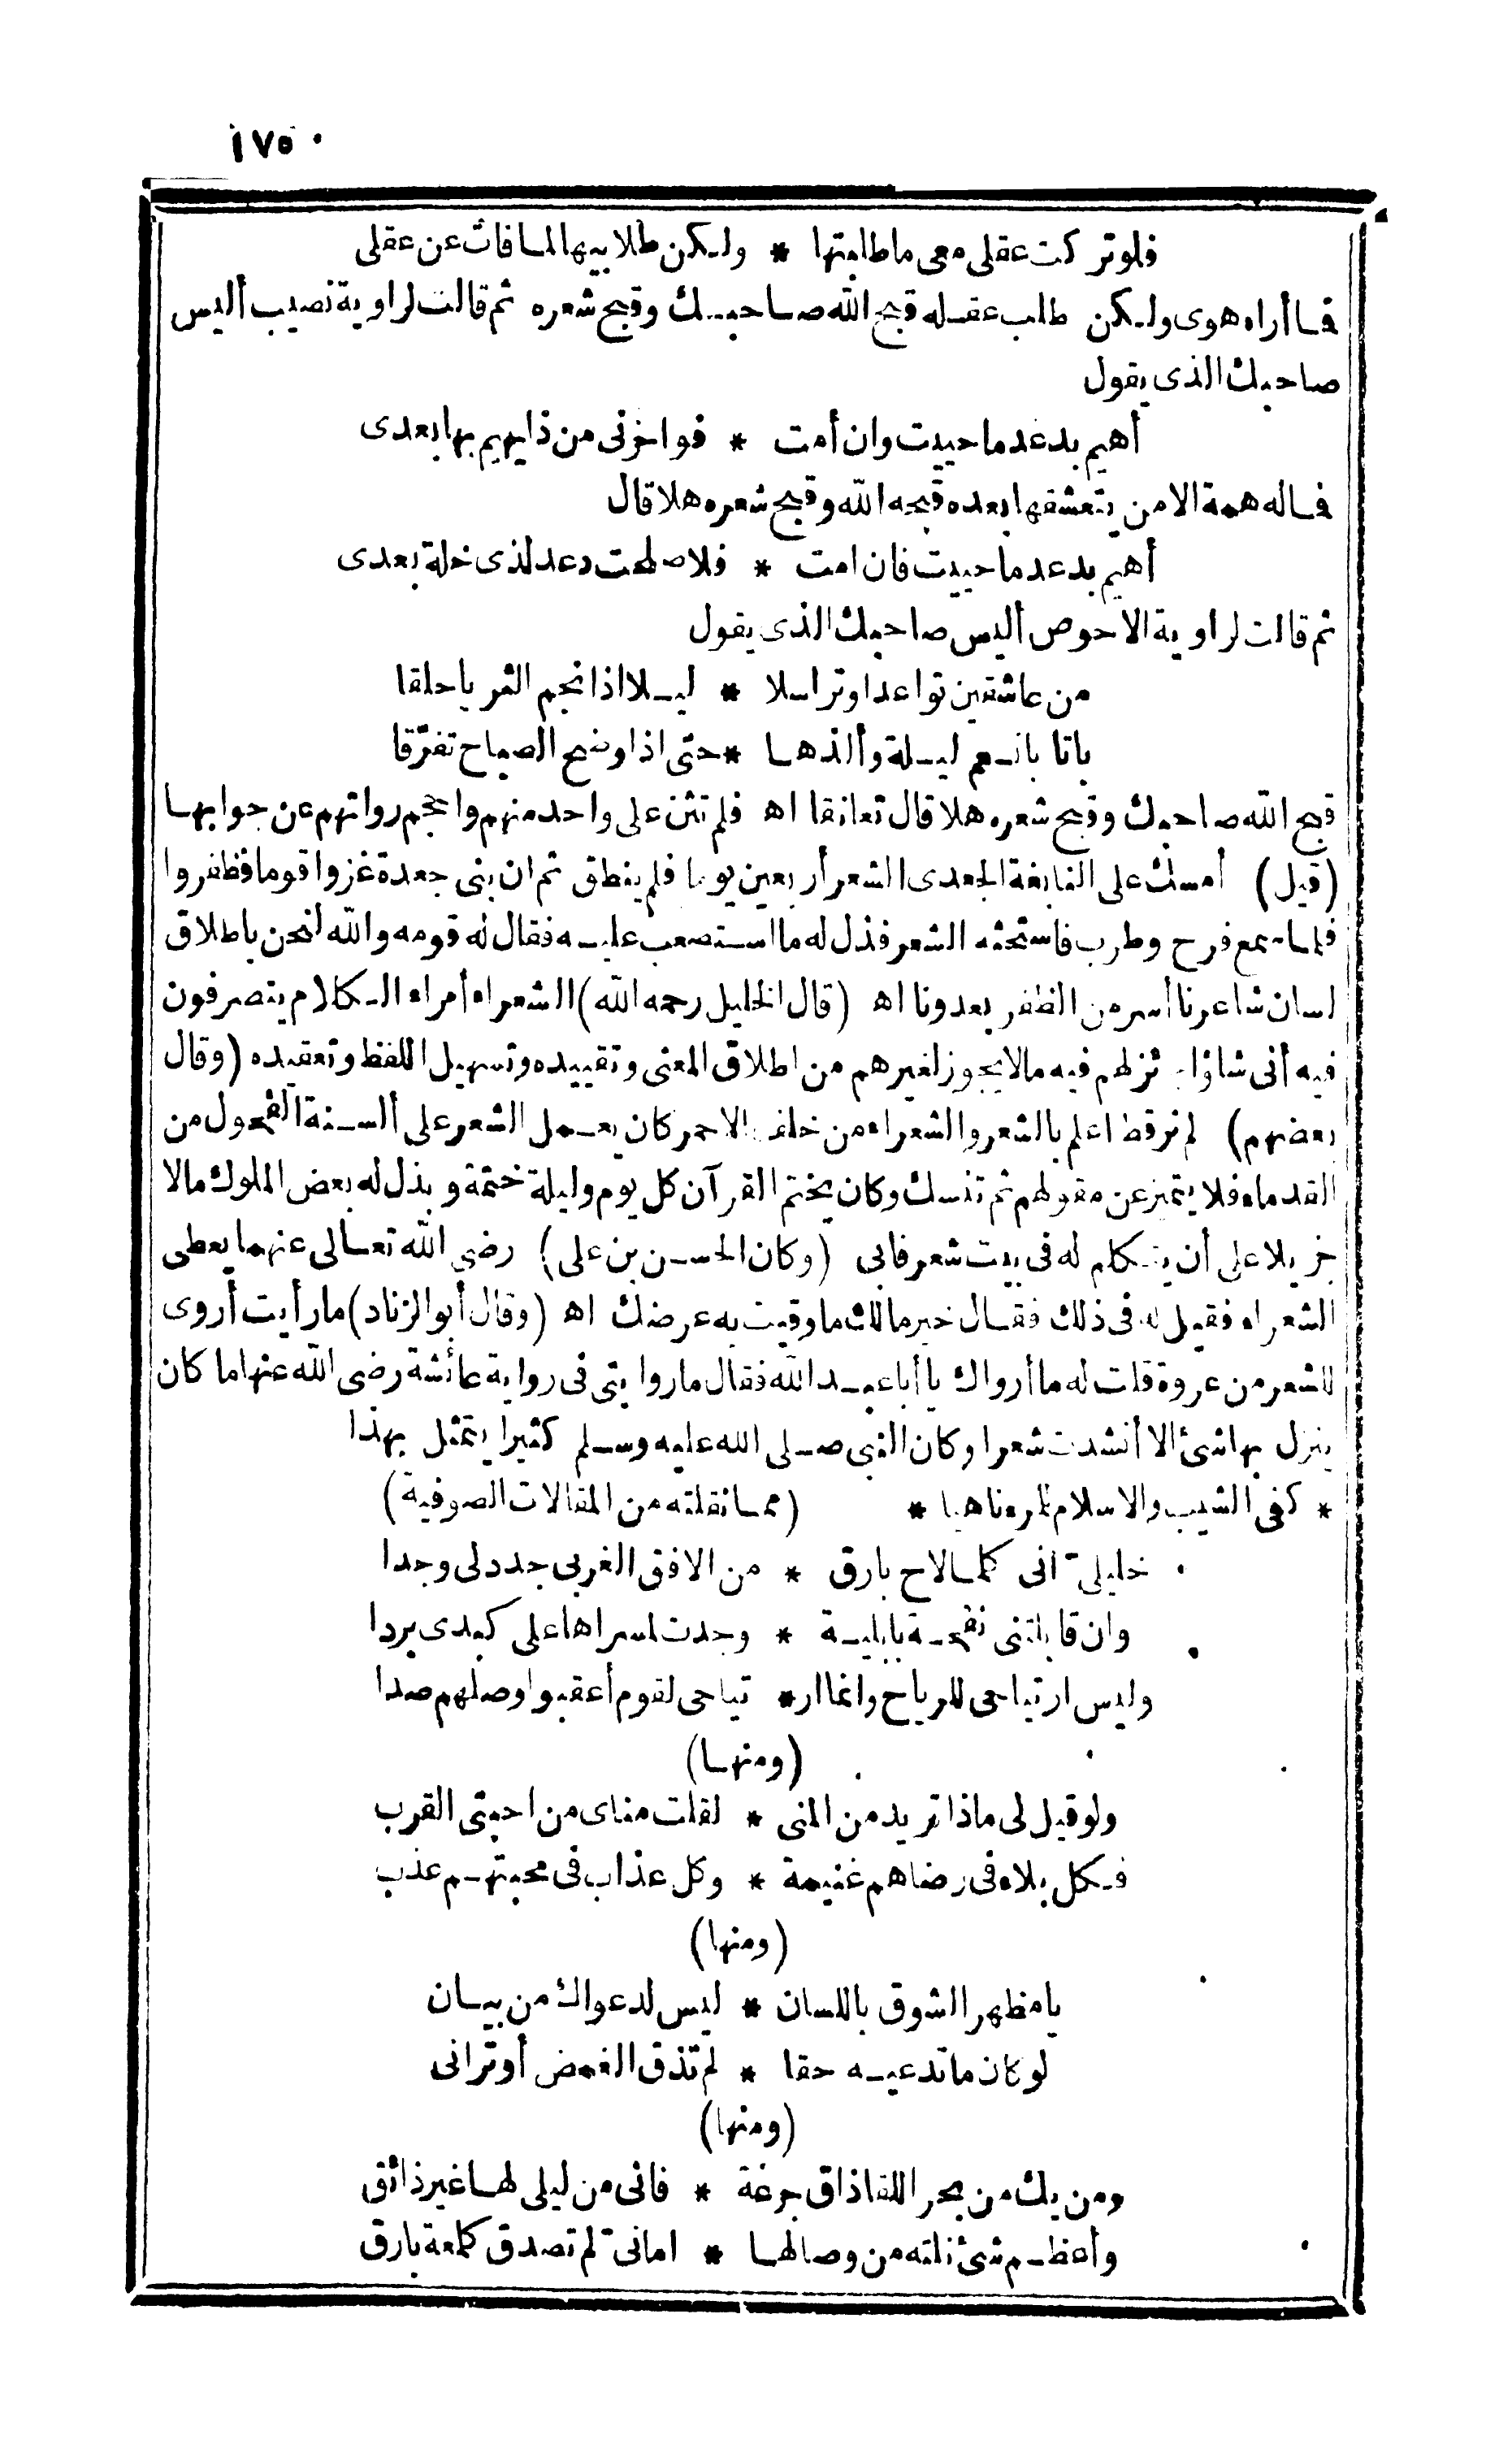 ١٧٥
فلوتركت عقلى معى ماطلبتها * ولكن طلابيها لمافات عن عقلى
فما أراه هوى ولكن طلب عقله قبح الله صاحبك وقبح شعره ثم قالت لراوية نصيب أليس
صاحبك الذى يقول
أهيم بدعد ماحييت وان أمت * فواحزنى من ذايهيم بها بعدى
فماله همة الامن يتعشقها بعده قبحه الله وقبح شعره هلا قال
أهيم بدعد ماحييت فان امت * فلا صلحت دعد لذى خلة بعدى
ثم قالت لراوية الاحوص أليس صاحبك الذى يقول
من عاشقين تواعدا وتراسلا * ليلا اذا نجم الثريا حلقا
باتا بانعم ليلة وألذها * حتى اذا وضح الصباح تفرّقا
قبح الله صاحبك وقبح شعره هلا قال تعانقا اه فلم تثن على واحد منهم واحجم رواتهم عن جوابها
(قيل) أمسك على النابغة الجعدى الشعر أربعين يوما فلم ينطق ثم ان بنى جعدة غزوا قوما فظفروا
فلما سمع فرح وطرب فاستحثه الشعر فذل له ما استصعب عليه فقال له قومه والله لنحن باطلاق
لسان شاعرنا أسر من الظفر بعدونا اه (قال الخليل رحمه الله) الشعراء أمراء الكلام يتصرفون
فيه أنى شاؤا جائز لهم فيه مالا يجوز لغيرهم من اطلاق المعنى وتقييده وتسهيل اللفظ وتعقيده (وقال
بعضهم) لم نرقط اعلم بالشعر والشعراء من خلف الاحمر كان يعمل الشعر على ألسنة الفحول من
القدماء فلا يتميز عن مقولهم ثم تنسك وكان يختم القرآن كل يوم وليلة ختمة وبذل له بعض الملوك مالا
جزيلا على أن يتكلم له فى بيت شعر فابى (وكان الحسن بن على) رضى الله تعالى عنهما يعطى
الشعراء فقيل له فى ذلك فقال خير مالك ما وقيت به عرضك اه (وقال أبو الزناد) مارأيت أروى
للشعر من عروة قلت له ما أرواك يا أبا عبد الله فقال ماروايتى فى رواية عائشة رضى الله عنها ما كان
ينزل بها شئ الا أنشدت شعرا وكان النبى صلى الله عليه وسلم كثيرا يتمثل بهذا
* كفى الشيب والاسلام للمرء ناهيا * (مما نقلته من المقالات الصوفية)
خليلىّ انى كلما لاح بارق * من الافق الغربى جدد لى وجدا
وان قابلتنى نفحة بابلية * وجدت لمسراها على كبدى بردا
وليس ارتياحى للرياح وانما ار * تياحى لقوم أعقبوا وصلهم صدا
(ومنها)
ولو قيل لى ماذا تريد من المنى * لقلت مناى من احبتى القرب
فكل بلاء فى رضاهم غنيمة * وكل عذاب فى محبتهم عذب
(ومنها)
يا مظهر الشوق باللسان * ليس لدعواك من بيان
لو كان ما تدعيه حقا * لم تذق الغمض أو ترانى
(ومنها)
ومن يك من بحر اللقا ذاق جرعة * فانى من ليلى لها غير ذائق
وأعظم شئ نلته من وصالها * امانىّ لم تصدق كلمعة بارق